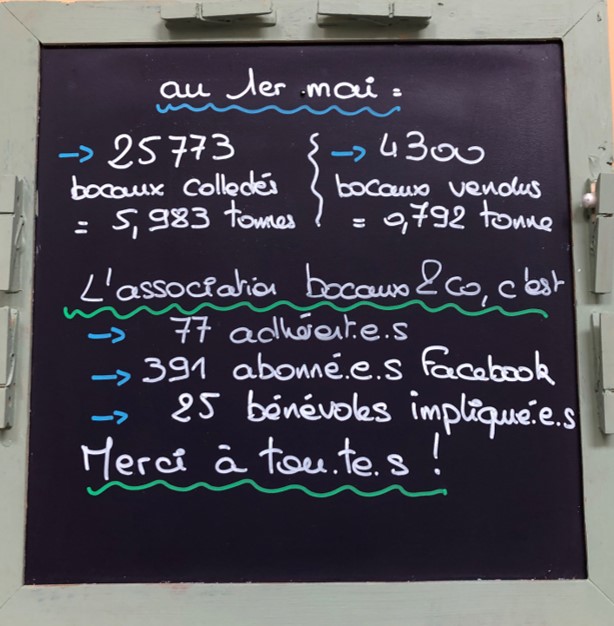 au 1er mai :
→ 25773
bocaux collectés
= 5,983 tonnes
→ 4300
bocaux vendus
= 0,792 tonne
L'association bocaux &co, c'est
→ 77 adhérent.e.s
→ 391 abonné.e.s Facebook
→ 25 bénévoles impliqué.e.s
Merci à tou.te.s !